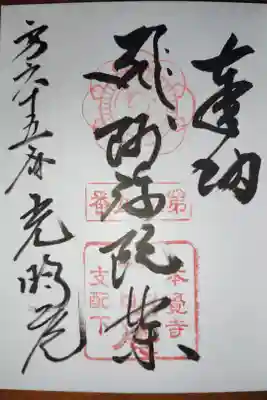 奉納
阿弥陀
第 番
本覺寺
支配下
第六十五番 光明庵